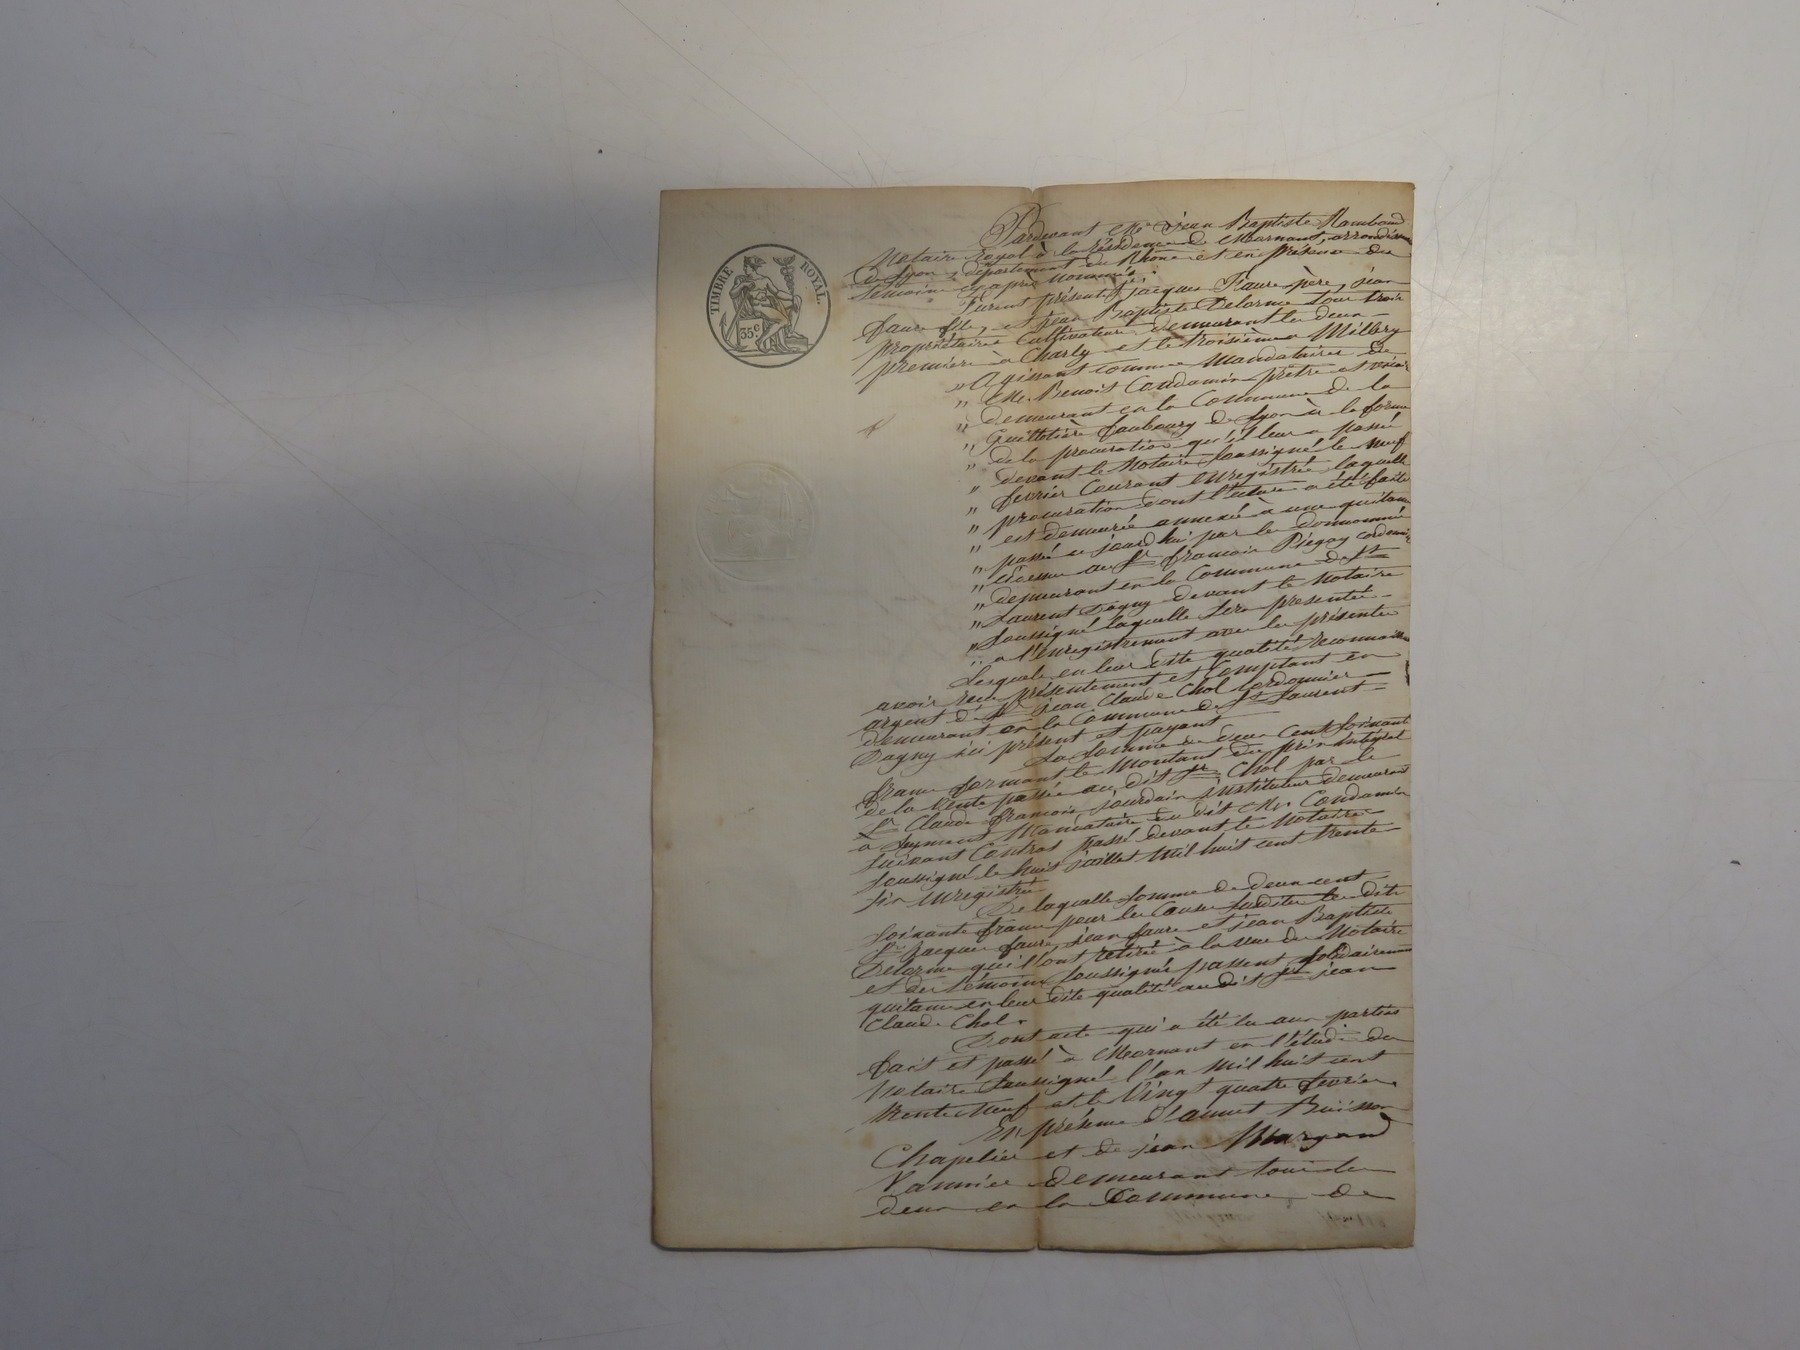 TIMBRE ROYAL.
35c
Pardevant Me Jean Baptiste Rambaud
Notaire royal à la résidence de Mornant, arrondissem
de Lyon, département du Rhône et en présence des
témoins ci après nommés.
Furent présents Jacques Faure père, jean
faure fils, et Jean Baptiste Delorme tous trois
propriétaires Cultivateurs demeurant les deux
premiers à Charly et le troisième à Millery
" Agissant comme Mandataires de
" Mr. Benoit Condamin prêtre et vicair
" demeurant en la Commune de la
" Guillotière faubourg de Lyon à la forme
" de la procuration qu'il leur a passé
" devant le Notaire soussigné le neuf
" fevrier Courant enregistré laquelle
" procuration dont lecture a été faite
" est demeurée annexée à une quitance
" passé ce jourd'hui par les
" au Sr françois Piegay cordonnier
" demeurant en la Commune de St
" Laurent Dagny devant le Notaire
" Soussigné laquelle sera presentée
" a l'enregistrement avec les présentes
Lesquels en leur dite qualité reconnaissent
avoir reçu présentement et Comptant en
argent de Sr jean Claude Chol Cordonnier
demeurant en la Commune de St Laurent
Dagny ici présent et payant
La Somme de deux Cent Soixante
francs formant le Montant du prix intégral
de la Vente passée au dit Sr Chol par le
Sr Claude françois jourdain instituteur demeurant
a Mandataire du dit Mr Condamin
Suivant Contrat passé devant le Notaire
soussigné le huit juillet Mil huit cent trente
six enregistré
De laquelle Somme de deux cent
soixante francs pour les Causes susdites les dits
Srs Jacques faure, jean faure et jean Baptiste
Delorme qui l'ont retirée à la vue du Notaire
et des témoins soussignés passent solidairement
quitance en leur dite qualité au dit Sr jean
Claude Chol.
Dont acte qui a été lu aux parties
fait et passé à Mornant en l'étude du
Notaire Soussigné l'an Mil huit cent
trente Neuf et le Vingt quatre fevrier
En présence d'annet Buisson
Chapelier et de jean Margand
Vannier demeurant tous les
deux en la Commune de